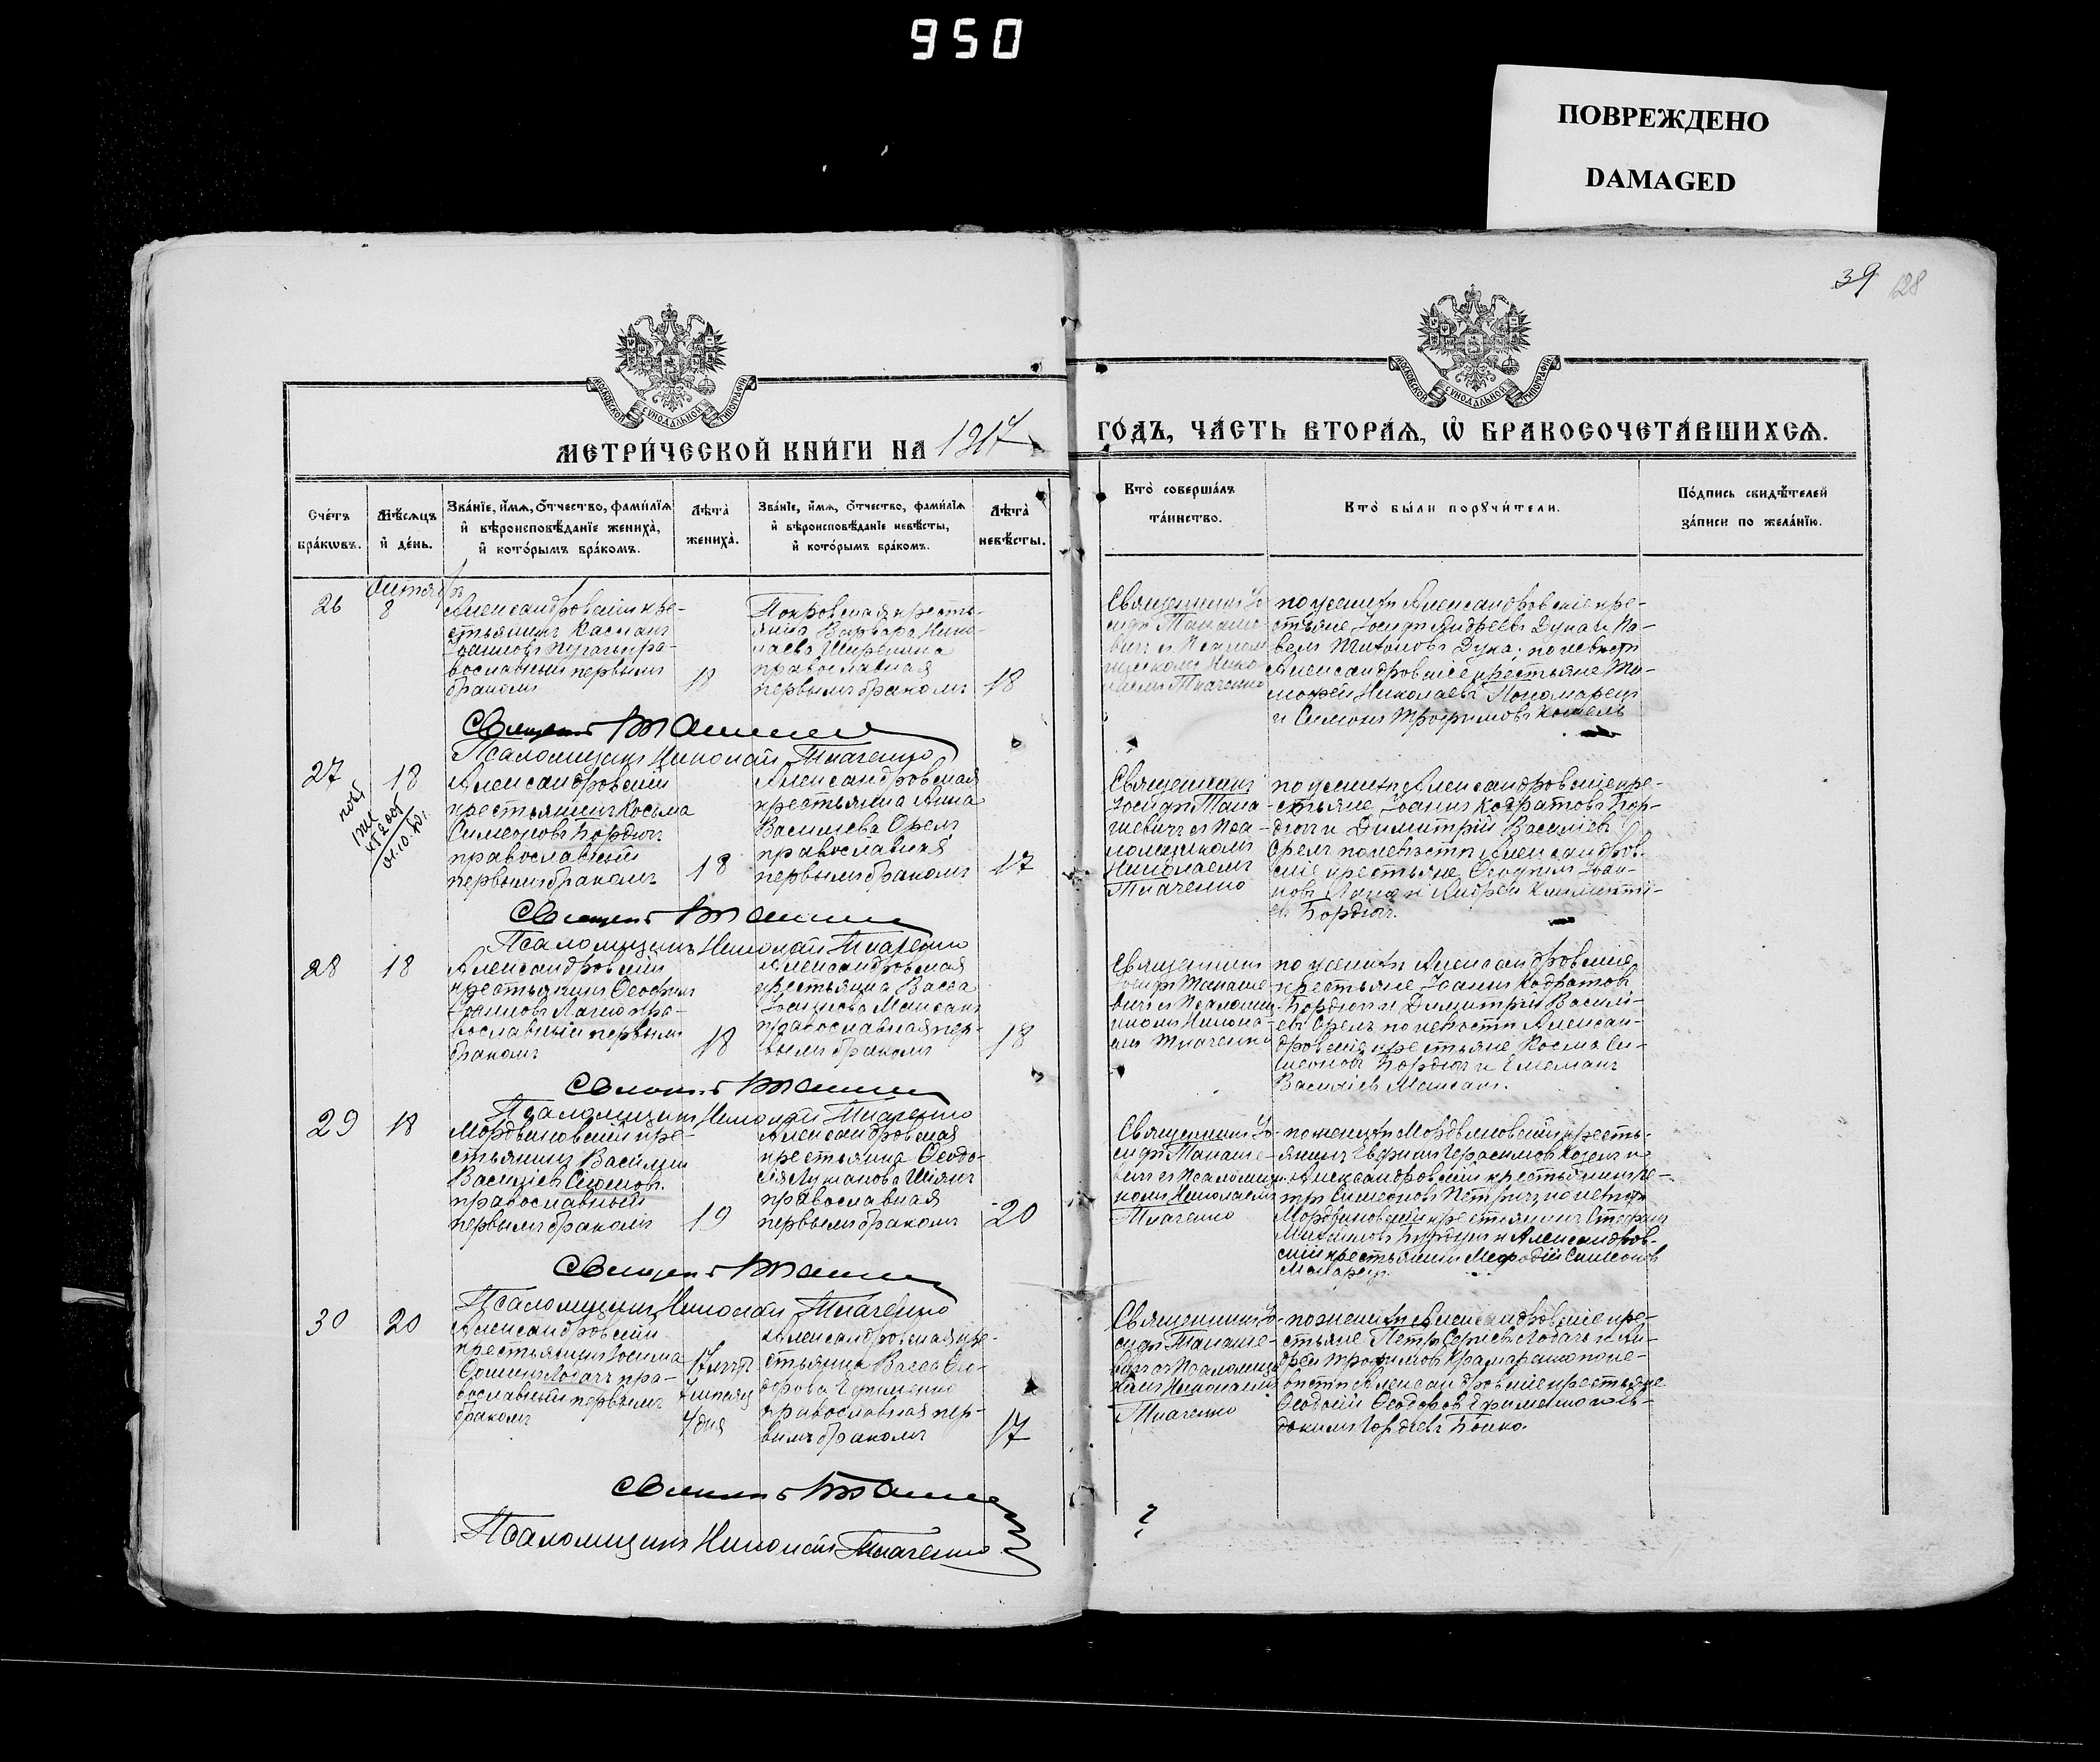 950
ПОВРЕЖДЕНО
DAMAGED
39 128
МОСКОВСКОЙ СУНОДАЛЬНОЙ ТИПОГРАФІИ
МОСКОВСКОЙ СУНОДАЛЬНОЙ ТИПОГРАФІИ
МЕТРИ́ЧЕСКОЙ КНИ́ГИ НА 1917
ГО́ДЪ, ЧА́СТЬ ВТОРА́Я, Ѡ҆ БРАКОСОЧЕТА́ВШИХСЯ.
Сче́тъ
бра́кѡвъ.
Мѣ́сяцъ
и҆ де́нь.
Зва́нїе, и҆́мя, ѻ҆́тчество, фами́лїя
и҆ вѣроисповѣ́данїе жениха̀,
и҆ кото́рымъ бра́комъ.
Лѣта̀
жениха̀.
Зва́нїе, и҆́мя, ѻ҆́тчество, фами́лїя
и҆ вѣроисповѣ́данїе невѣ́сты,
и҆ кото́рымъ бра́комъ.
Лѣта̀
невѣ́сты.
Кто̀ соверша́лъ
та́инство.
Кто̀ бы́ли порꙋчи́тели.
По́дпись свидѣ́телей
за́писи по жела́нїю.
Октябрь
26
8
Александровскій кре-
стьянинъ Касіанъ
Іоанновъ пра-
вославный первымъ
бракомъ
18
Покровская кресть-
янка Варвара Нико-
лаева
православная
первымъ бракомъ
18
Священникъ Іо-
сифъ Танаше-
вичъ съ Псалом-
щикомъ Нико-
лаемъ Ткаченко
по женихѣ Александровскіе кре-
стьяне Іосифъ Андреевъ Дука и Па-
велъ Антоновъ Дука; по невѣстѣ
Александровскіе крестьяне Ти-
мофей Николаевъ Пономарец
и Симонъ Трофимовъ
Священ
Псаломщикъ Николай Ткаченко
27
18
Александровскій
крестьянинъ Косьма
Симеоновъ Бордюгъ
православный
первымъ бракомъ
18
Александровская
крестьянка Анна
Василіева Орелъ
православная
первымъ бракомъ
17
Священникъ
Іосифъ Тана-
шевичъ съ Пса-
ломщикомъ
Николаемъ
Ткаченко
по женихѣ Александровскіе кре-
стьяне Іоаннъ Кодратовъ Бор-
дюгъ и Димитрій Василіевъ
Орелъ по невѣстѣ Александров-
скіе крестьяне Ѳеофилъ Іоан-
новъ и Андрей Климентi-
евъ Бордюгъ.
Священ
Псаломщикъ Николай Ткаченко
28
18
Александровскій
крестьянинъ Ѳеофилъ
Іоанновъ пра-
вославный первымъ
бракомъ
18
Александровская
крестьянка Васса
православная пер-
вымъ бракомъ
18
Священникъ
Іосифъ Танаше-
вичъ съ Псаломщи-
комъ Никола-
емъ Ткаченко
по женихѣ Александровскіе
крестьяне Іоаннъ Кодратовъ
Бордюгъ и Димитрій Василі-
евъ Орелъ по невѣстѣ Алексан-
дровскіе крестьяне Косма Си-
меоновъ Бордюгъ и
Василіевъ
Священ
Псаломщикъ Николай Ткаченко
29
18
Мордвиновскій кре-
стьянинъ Василій
Василіевъ
православный
первымъ бракомъ
19
Александровская
крестьянка Ѳеодо-
сія
православная
первымъ бракомъ
20
Священникъ Іо-
сифъ Танаше-
вичъ съ Псаломщи-
комъ Николаемъ
Ткаченко
по женихѣ Мордвиновскій кресть-
янинъ Герасимовъ и
Александровскій крестьянинъ Пе-
тръ Симеоновъ по невѣстѣ
Мордвиновскій крестьянинъ Стефанъ
и Александров-
скій крестьянинъ Мефодій Симеоновъ
Священ
Псаломщикъ Николай Ткаченко
30
20
Александровскій
крестьянинъ
пра-
вославный первымъ
бракомъ
17 лѣтъ
7 мѣсяц
4 дня
Александровская кре-
стьянка Васса Ѳео-
дорова Ефименко
православная пер-
вымъ бракомъ
17
Священникъ Іо-
сифъ Танаше-
вичъ съ Псаломщи-
комъ Николаемъ
Ткаченко
по женихѣ Александровскіе кре-
стьяне Петръ и Ан-
дрей Трофимовъ по не-
вѣстѣ Александровскіе крестьяне
Ѳеодосій Ѳеодоровъ Ефименко и Ев-
докимъ Гордіевъ Бойко.
Священ
Псаломщикъ Николай Ткаченко